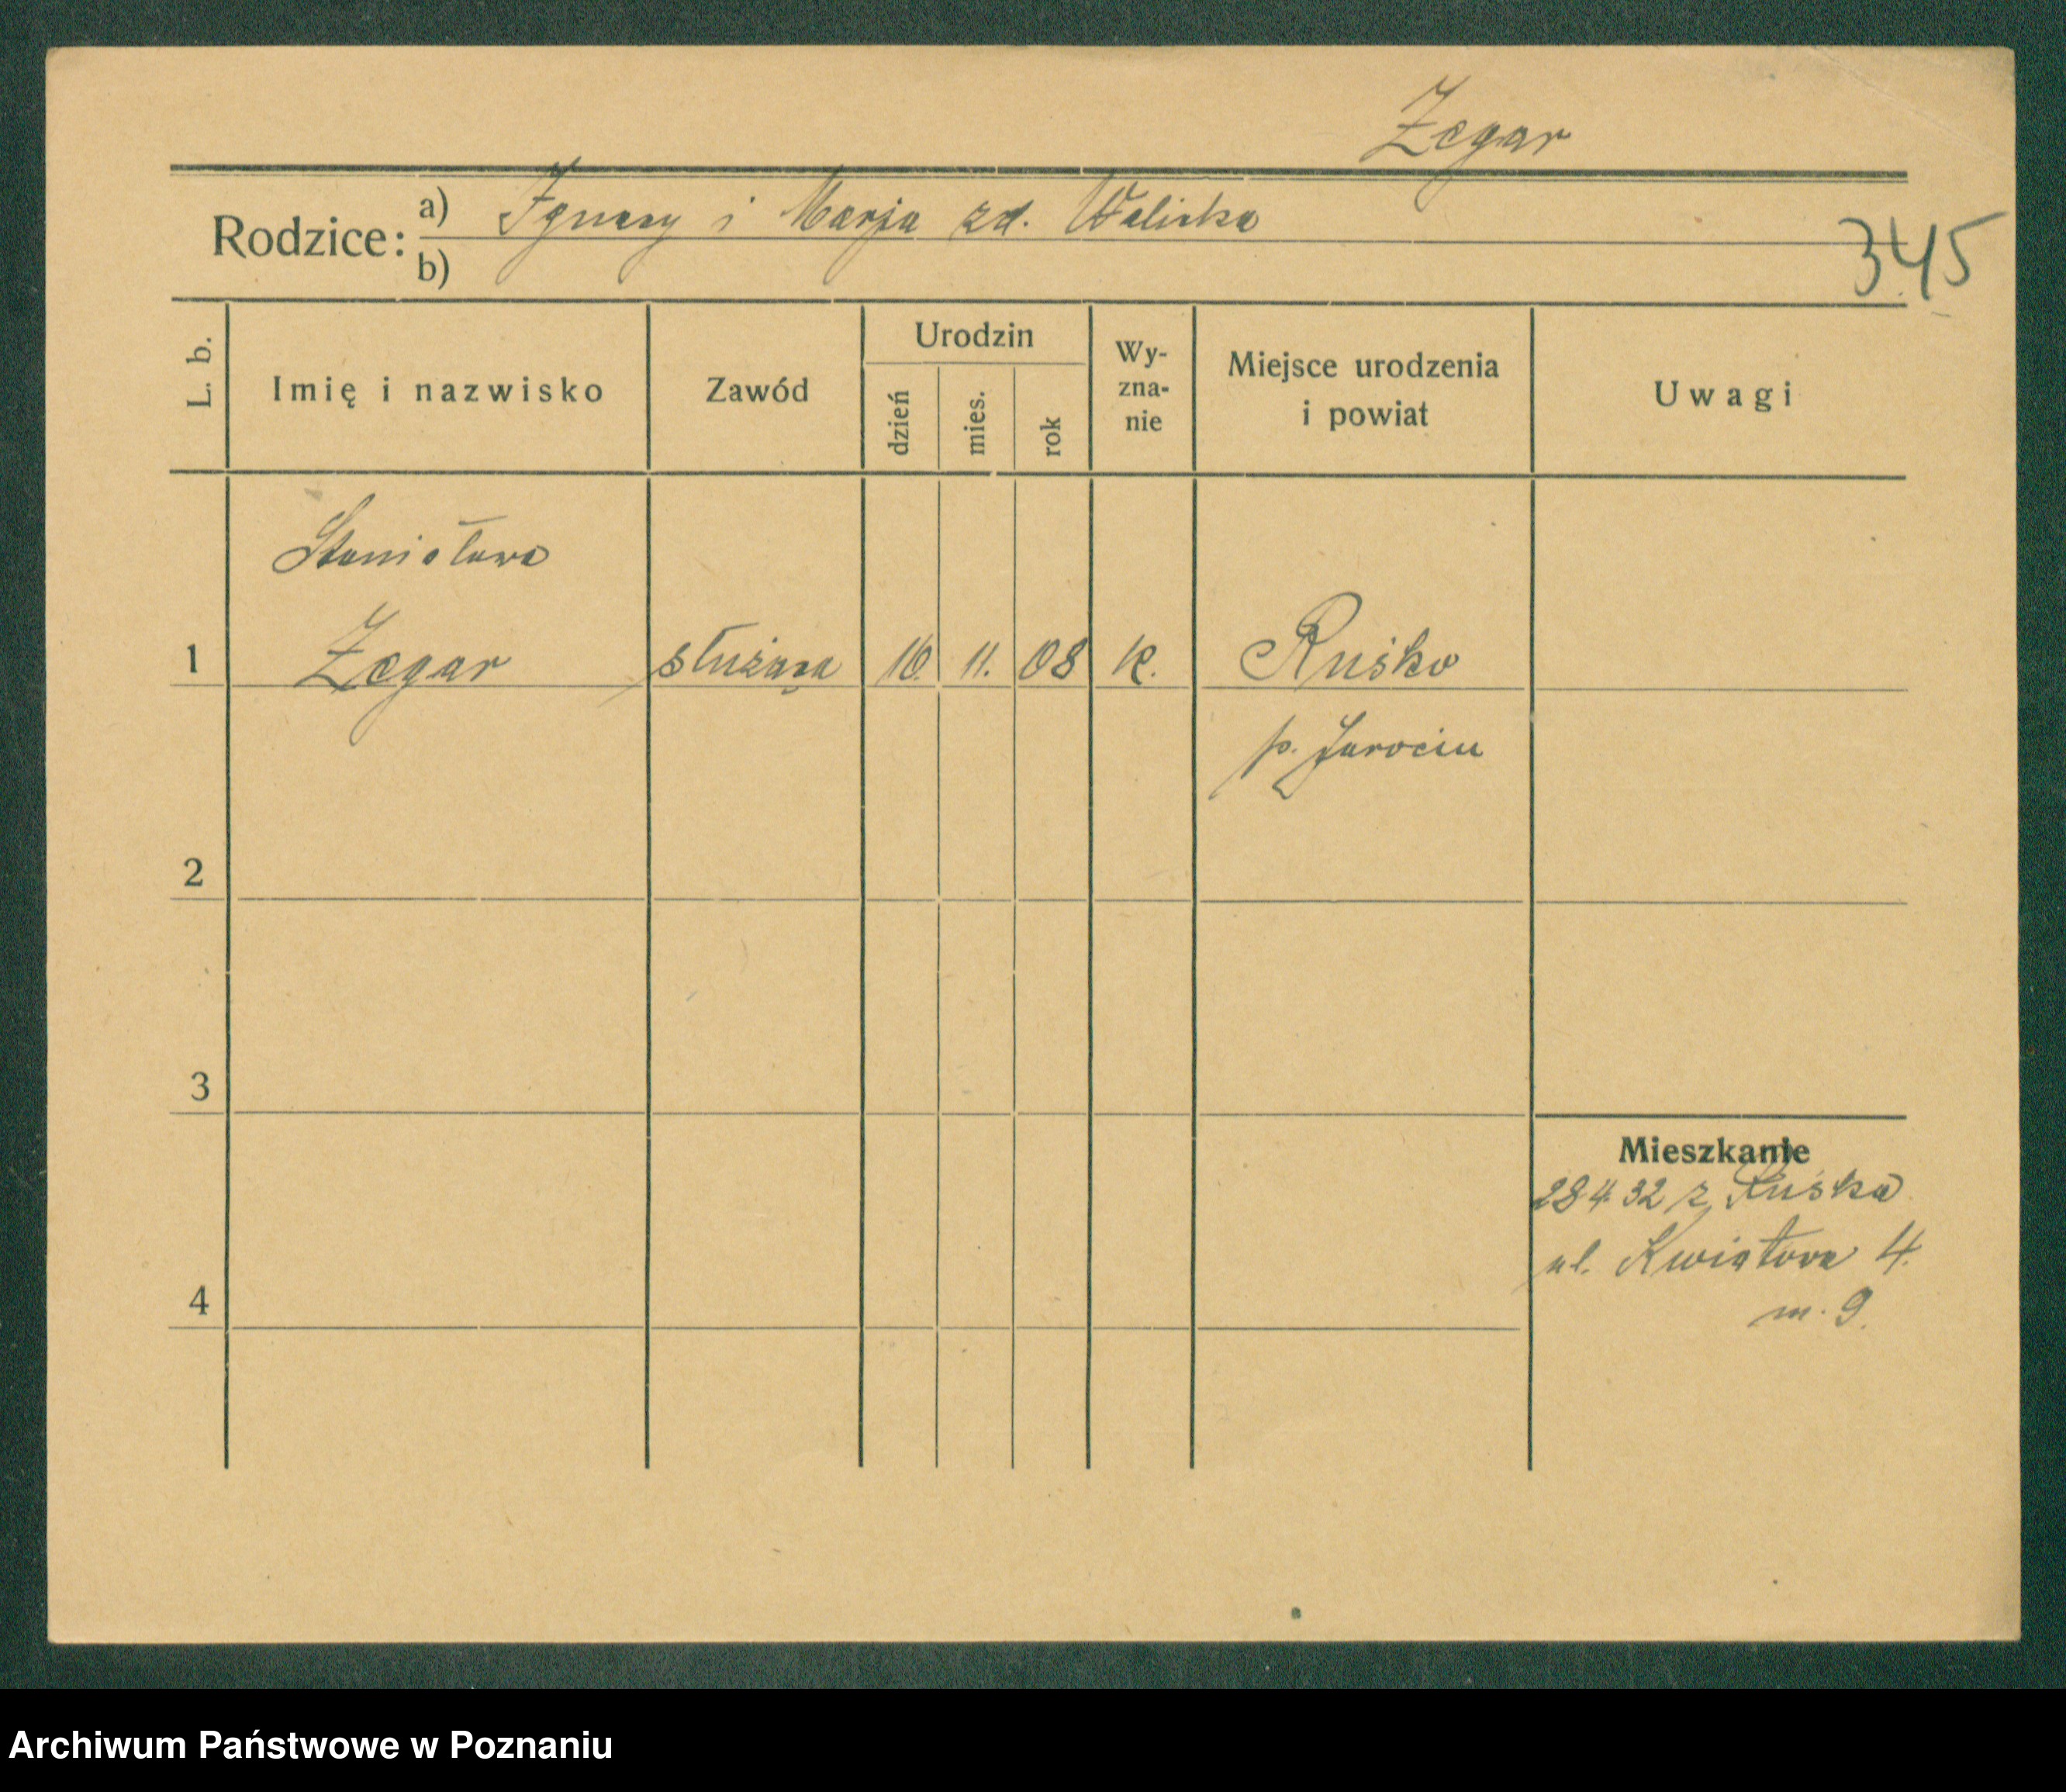 Zegar
Rodzice: a) Ignacy i Marja zd. Walicka
b)
345
L. b.
Imię i nazwisko
Zawód
Urodzin
dzień
mies.
rok
Wy-
zna-
nie
Miejsce urodzenia
i powiat
Uwagi
Stanisława
1 Zegar służąca 10. 11. 08 k. Ruśko
p. Jarocin
2
3
Mieszkanie
28 4 32 z Ruśka
ul. Kwiatowa 4.
4
m. 9.
Archiwum Państwowe w Poznaniu